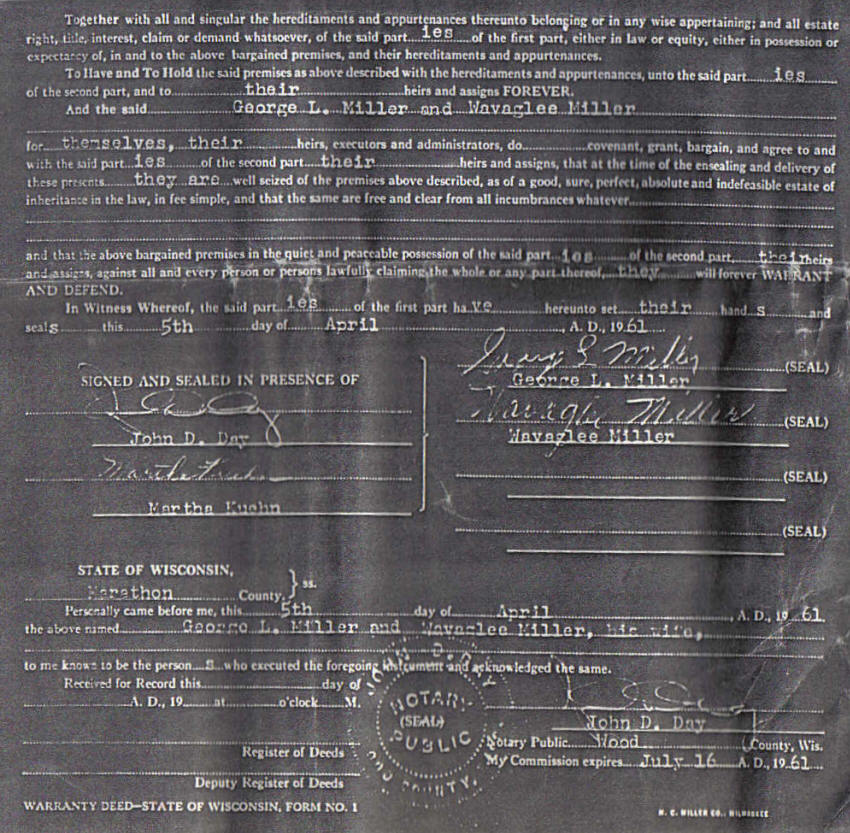 Together with all and singular the hereditaments and appurtenances thereunto belonging or in any wise appertaining; and all estate
right, title, interest, claim or demand whatsoever, of the said part ies of the first part, either in law or equity, either in possession or
expectancy of, in and to the above bargained premises, and their hereditaments and appurtenances.
To Have and To Hold the said premises as above described with the hereditaments and appurtenances, unto the said part ies
of the second part, and to their heirs and assigns FOREVER.
And the said George L. Miller and Wavaglee Miller
for themselves, their heirs, executors and administrators, do covenant, grant, bargain, and agree to and
with the said part ies of the second part their heirs and assigns, that at the time of the ensealing and delivery of
these presents they are well seized of the premises above described, as of a good, sure, perfect, absolute and indefeasible estate of
inheritance in the law, in fee simple, and that the same are free and clear from all incumbrances whatever
and that the above bargained premises in the quiet and peaceable possession of the said part ies of the second part, their heirs
and assigns, against all and every person or persons lawfully claiming the whole or any part thereof, they will forever WARRANT
AND DEFEND.
In Witness Whereof, the said part ies of the first part have hereunto set their hand s and
seals this 5th day of April, A. D., 1961
George L Miller (SEAL)
SIGNED AND SEALED IN PRESENCE OF
George L. Miller
Wavaglee Miller (SEAL)
John D. Day
Wavaglee Miller
Martha Kuehn
(SEAL)
Martha Kuehn
(SEAL)
STATE OF WISCONSIN,
Marathon County, } ss.
Personally came before me, this 5th day of April, A. D., 1961
the above named George L. Miller and Wavaglee Miller, his wife,
to me known to be the person s who executed the foregoing instrument and acknowledged the same.
Received for Record this day of
A. D., 19 at o'clock M.
JOHN D. DAY
NOTARY
(SEAL)
PUBLIC
COUNTY,
John D. Day
Notary Public Wood County, Wis.
Register of Deeds
My Commission expires July 16 A. D., 1961
Deputy Register of Deeds
WARRANTY DEED—STATE OF WISCONSIN, FORM NO. 1
H. C. MILLER CO., MILWAUKEE